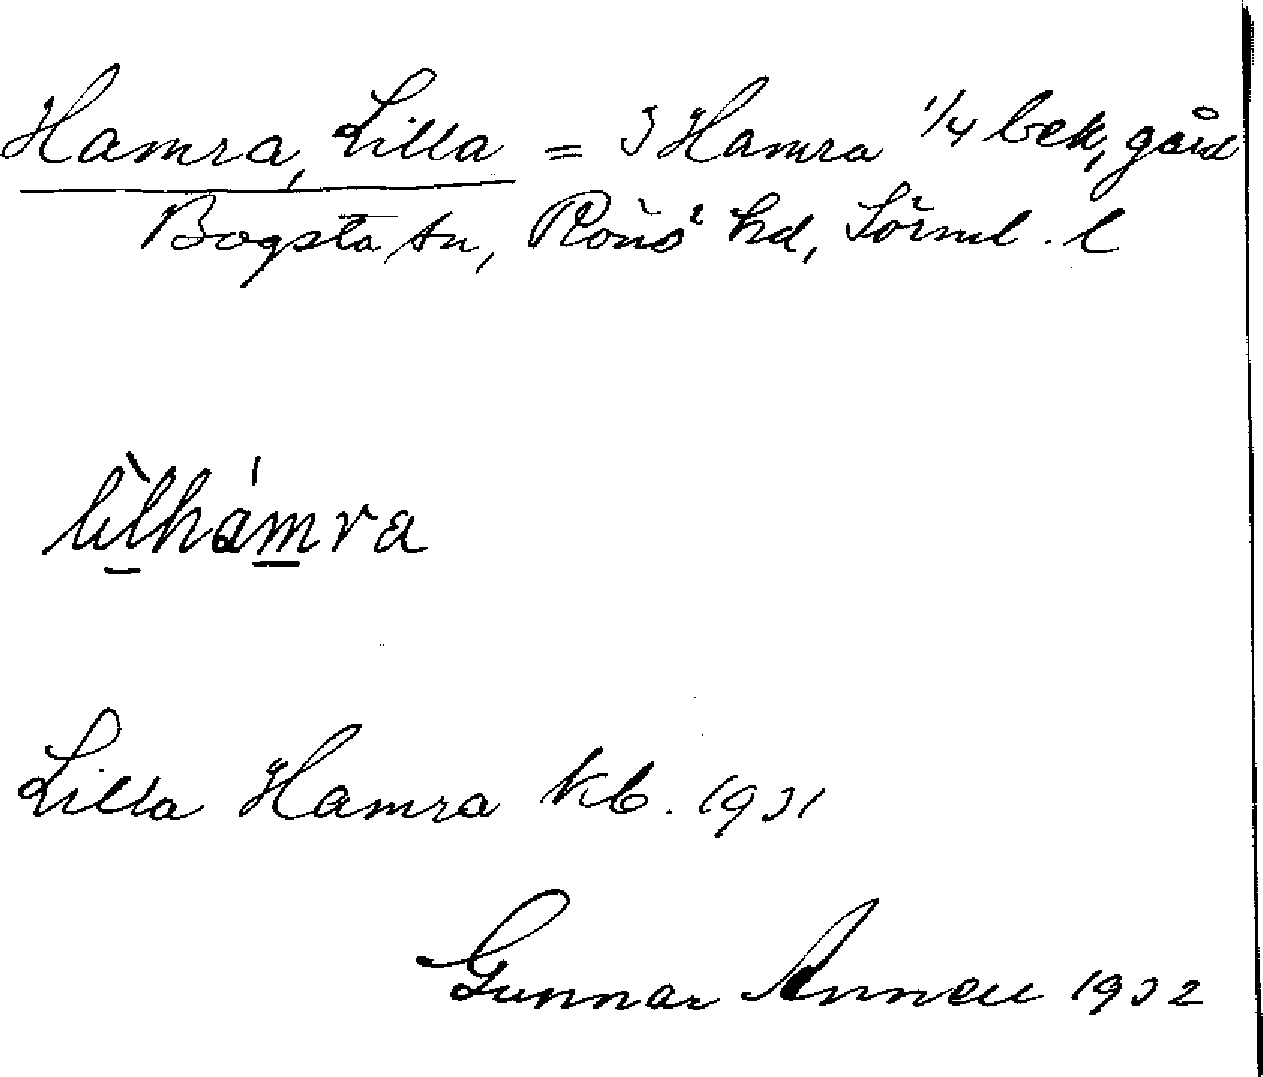 Hamra, Lilla = 3 Hamra 1/4 bek, gård
Bogsta sn, Rönö hd, Sörml. l
lìlhámra
Lilla Hamra kb. 1931
Gunnar 1932